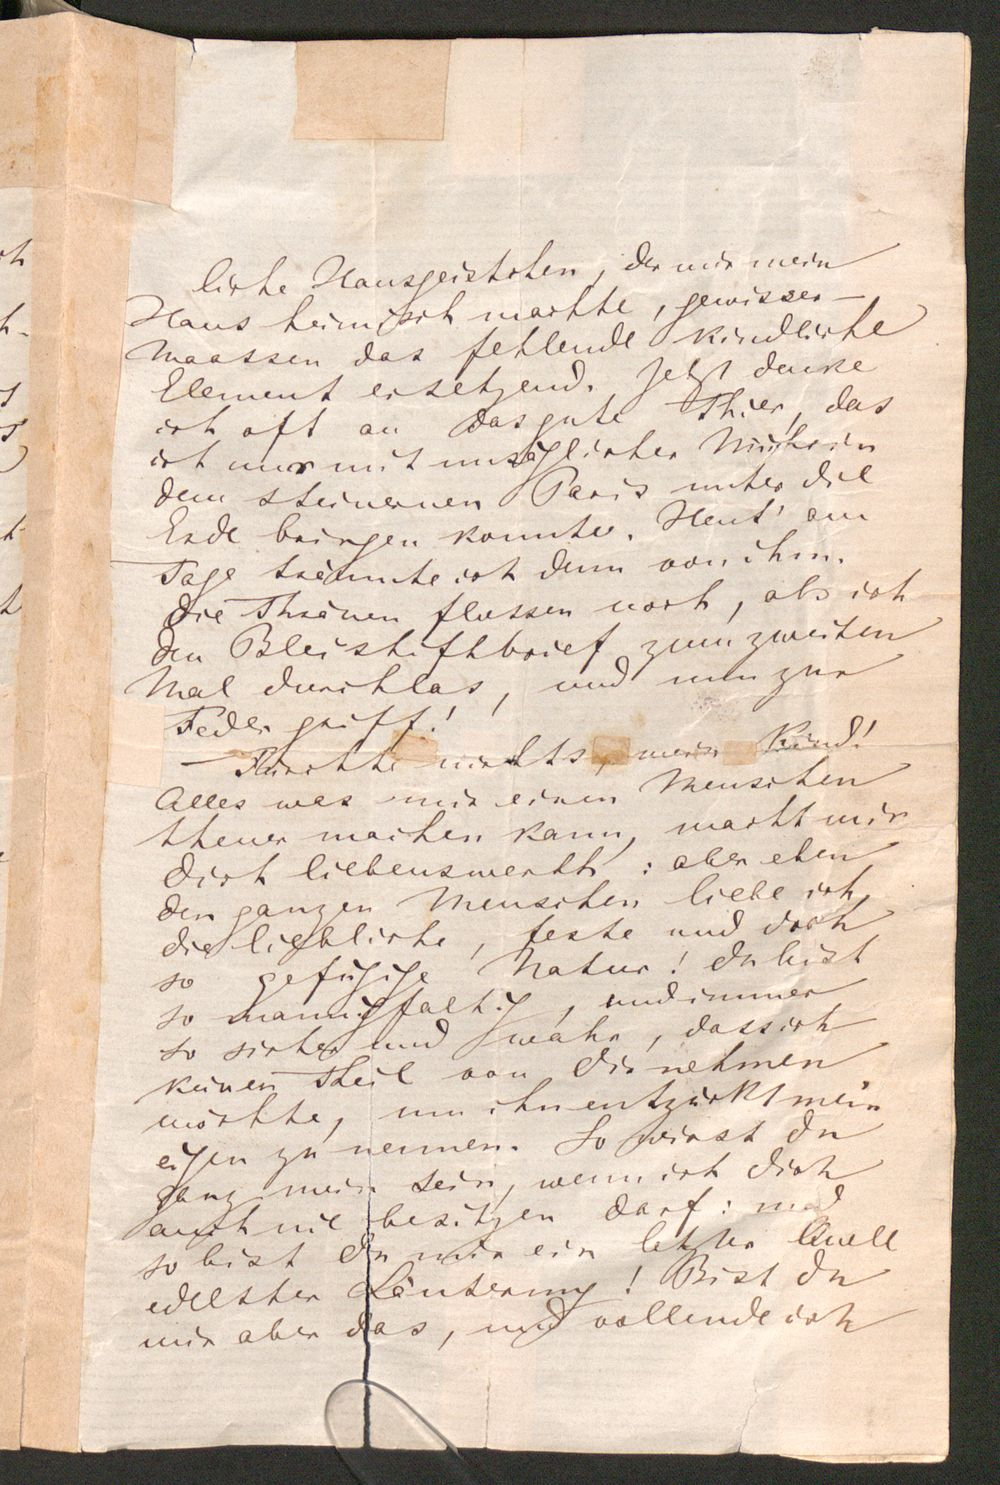 liche Hausgeistchen, der mir mein
Haus heimisch machte, gewisser-
maassen das fehlende kindliche
Element ersetzend. Jetzt denke
ich oft an das gute Thier, das
ich nur mit unsäglicher Mühe in
dem steinernen Paris unter die
Erde bringen konnte. Heut' am
Tage träumte ich denn von ihm.
Die Thränen flossen noch, als ich
den Bleistiftbrief zum zweiten
Mal durchlas, und nun zur
Feder griff!
— Fürchte nichts, mein Kind!
Alles was mir einen Menschen
theuer machen kann, macht mir
dich liebenswerth: aber eben
den ganzen Menschen liebe ich,
die liebliche, feste und doch
so gefügige Natur! Du bist
so mannigfaltig, und immer
so sicher und wahr, dass ich
keinen Theil von dir nehmen
möchte, um ihn entzückt mein
eigen zu nennen. So wirst du
ganz mein sein, wenn ich dich
auch nie besitzen darf: und
so bist du mir ein letzter Quell
edelster Läuterung! Bist du
mir aber das, und vollende ich